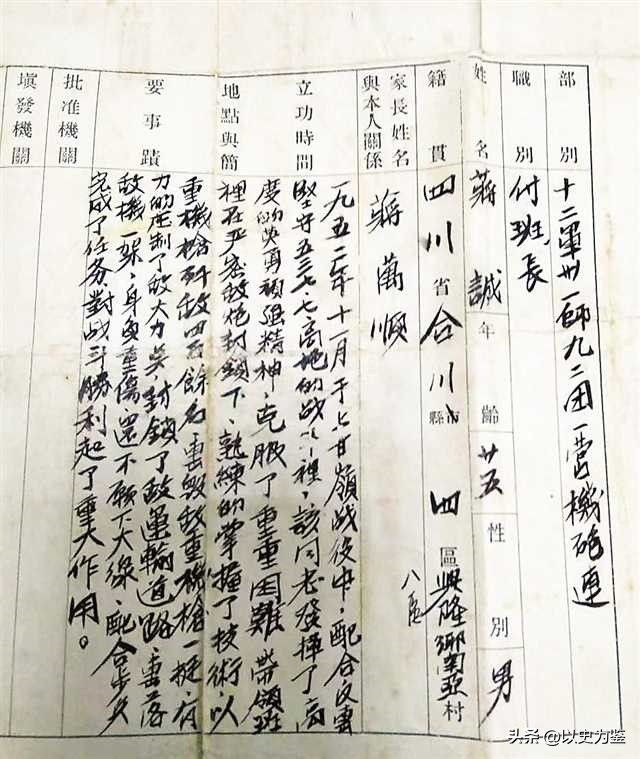 部別 十二軍卅一師九二团一营機砲連
職別 付班長
姓名 蔣誠 年齡 廿五 性別 男
籍貫 四川省合川縣市四區興隆鄉南亞村
八區
家長姓名
與本人關係 蔣萬順
立功時間
地點與簡
要事蹟
一九五二年十一月于上甘嶺战役中，配合反击
堅守五三七·七高地的战斗裡，該同志發揮了高
度的英勇頑强精神，克服了重重困難带領班
裡在严密敌炮封鎖下，熟練的掌握了技術，以
重機枪歼敌四百餘名，击毁敌重機枪一挺，有
力的压制了敌火力点封鎖了敌運輸道路，击落
敌機一架，身負重傷，還不願下火線，配合步兵
完成了任务對战斗勝利起了重大作用。
批准機關
填發機關
头条 @以史为鉴